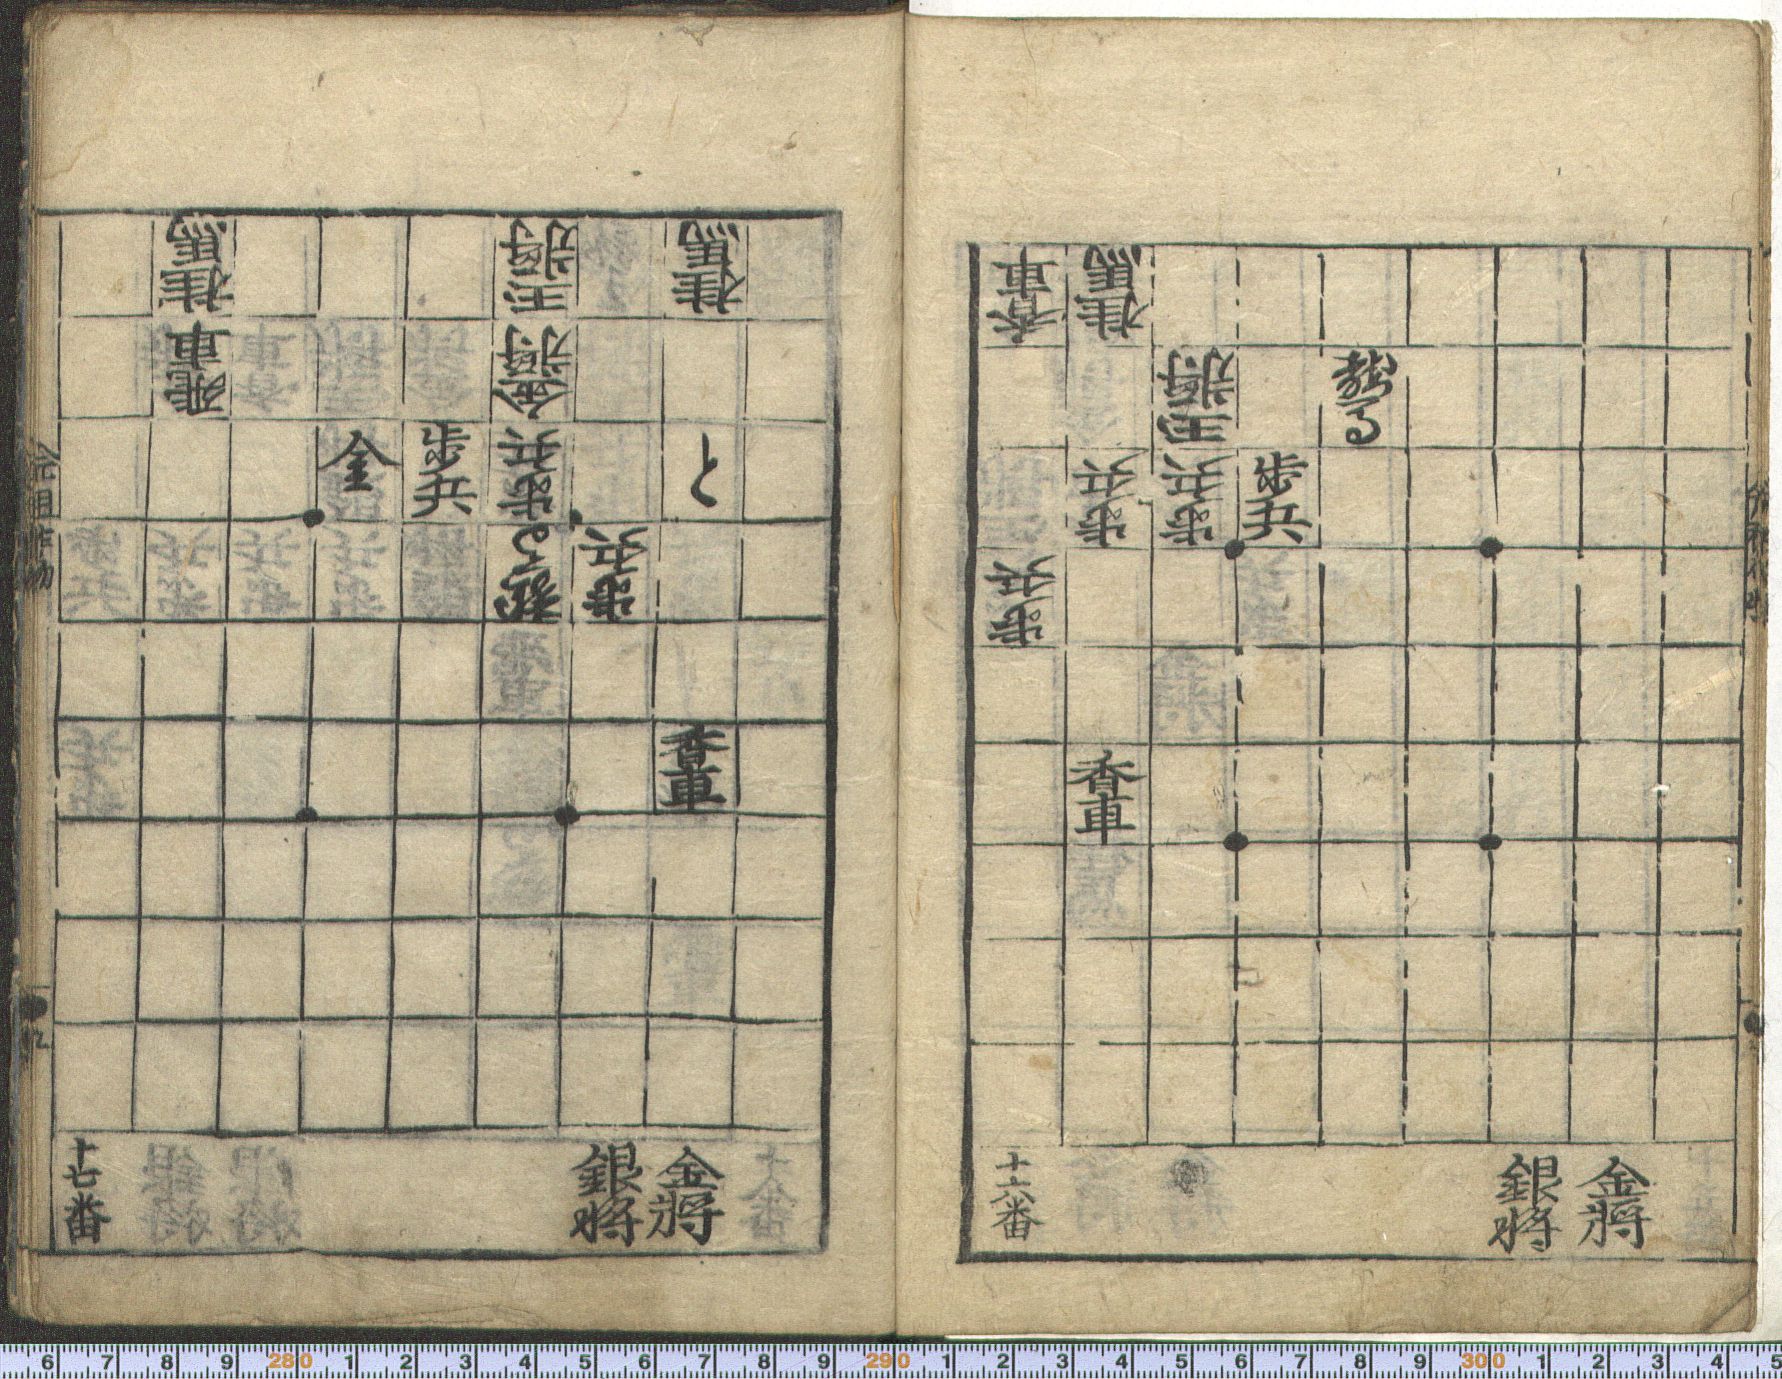 香車 桂馬
玉將
歩兵 歩兵 歩兵
歩兵
香車
十六番 銀将 金將
桂馬 玉將 桂馬
飛車 金將
金 歩兵 歩兵 と
歩兵
香車
十七番 銀将 金將
6 7 8 9 280 1 2 3 4 5 6 7 8 9 290 1 2 3 4 5 6 7 8 9 300 1 2 3 4 5